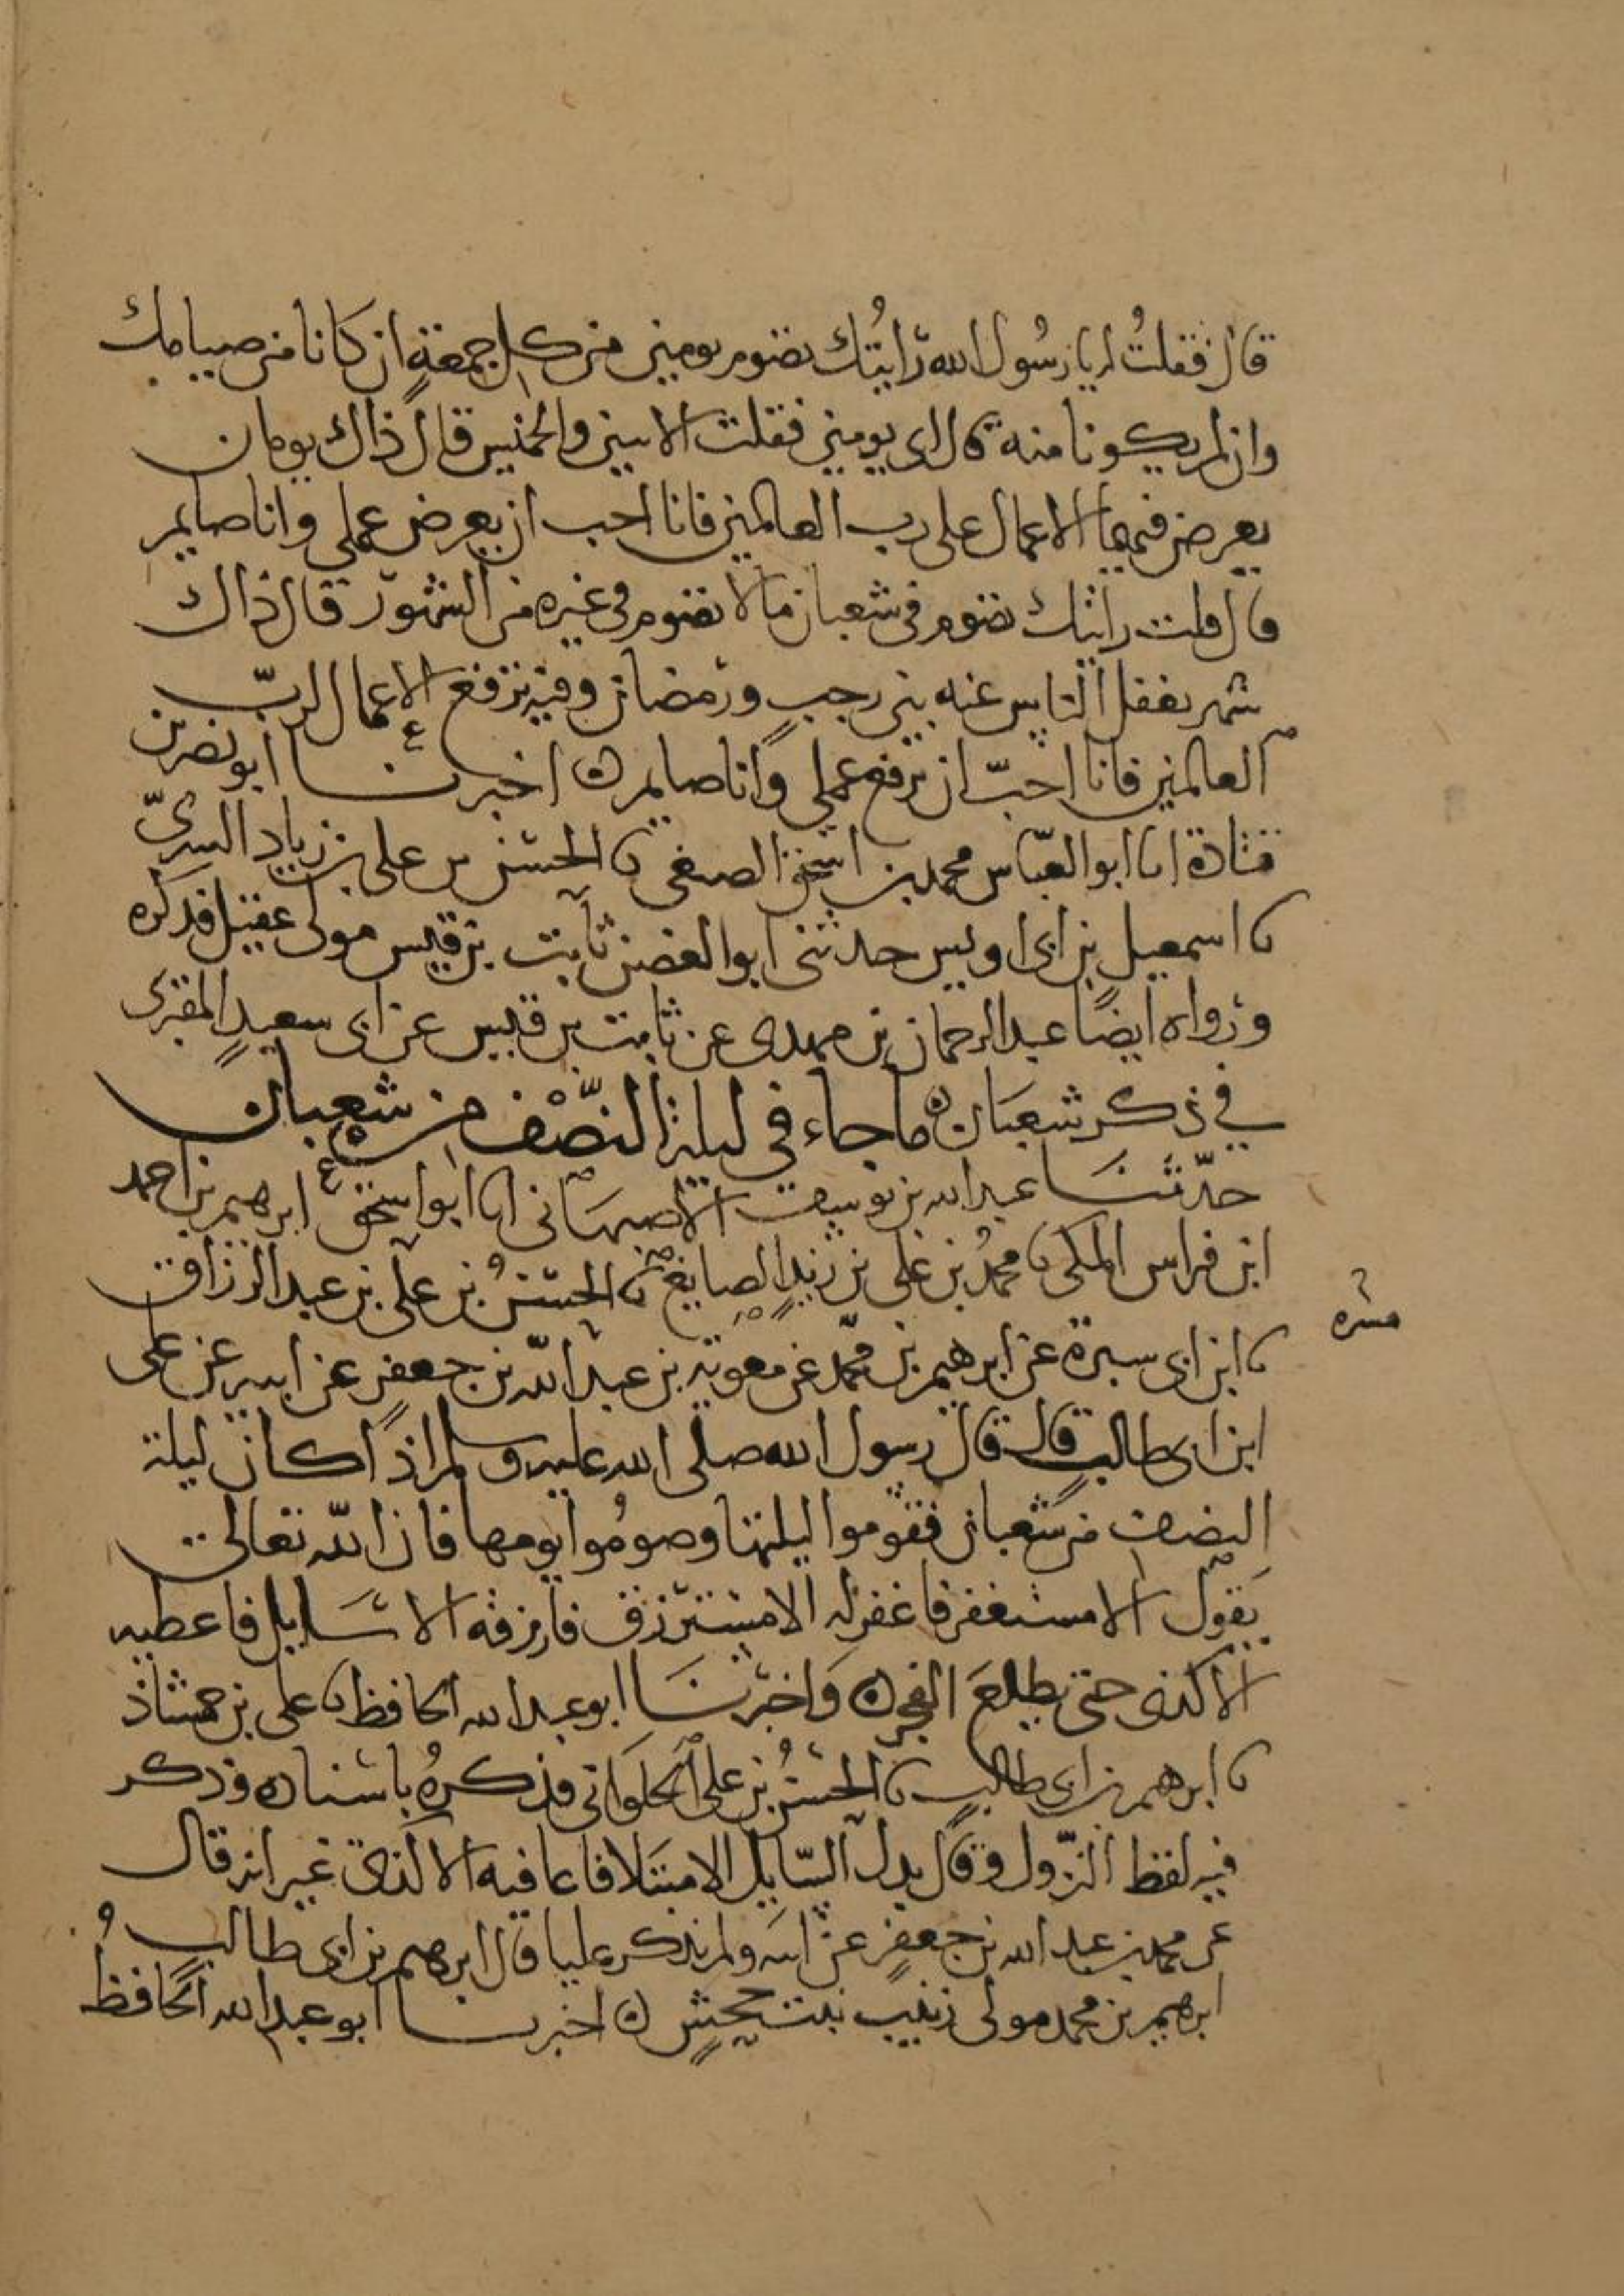 قال فقلتُ له يا رسُول الله رَايتُك تصوم يومين من كل جمعةٍ ان كانا من صيامك
وان لم يكونا منه قال اى يومين فقلت الاثنين والخميس قال ذاك يومان
يعرض فيهما الاعمال على رب العالمين فانا احب ان يعرض عملى وانا صايم
قال قلت رايتك تصوم فى شعبان مالا تصوم فى غيره من الشهور قال ذاك
شهر يغفل الناس عنه بين رجبٍ ورمضان وفيه ترفع الاعمال لربّ
العالمين فانا احبّ ان يرفع عملى وانا صايم ه اخبرنا ابو نصر بن
قتادة انا ابو العبّاس محمد بن اسحق الصبغى نا الحسن بن على بن زياد السرىّ
نا اسمعيل بن ابى اويس حدثنى ابو الغصن ثابت بن قيس مولى عقيل فذكره
ورواه ايضًا عبد الرحمان بن مهدى عن ثابت بن قيس عن ابى سعيدٍ المقبرى
في ذكر شعبان ه ما جاء فى ليلة النّصْف من شعبان
حدّثنَا عبد الله بن يوسف الاصبهانى انا ابو اسحق ابرهيم بن احمد
ابن فراس المكى نا محمدُ بن على بن زيدٍ الصايغ نا الحسنُ بن على بن عبد الرزاق
نا ابن ابى سبرة عن ابرهيم بن محمّد عن معوية بن عبد الله بن جعفر عن ابيه عن على
ابن ابى طالبٍ قال قال رسول الله صلى الله عليه وسلم اذا كان ليلة
النصف من شعبان فقوموا ليلتها وصومُوا يومها فان الله تعالى
يَقول الا مستغفر فاغفر له الا مسترزق فارزقه الا سَايل فاعطيه
الا كذى حتى يطلعَ الفجر ه وَاخبرنَا ابو عبد الله الحافظ نا على بن حمشاذ
نا ابرهيم بن ابى طالبٍ نا الحسنُ بن على الحلوَانى فذكرهُ باسناده وذكر
فيه لفظ النّزول وقال بدل السّايل الا مبتلا فاعافيه الا كذى غير انه قال
عن محمد بن عبد الله بن جعفرٍ عن ابيه ولم يذكر عليا قال ابرهيم بن ابى طالب
ابرهيم بن محمد مولى زينب بنت جحشٍ ه اخبرنا ابو عبد الله الحافظُ